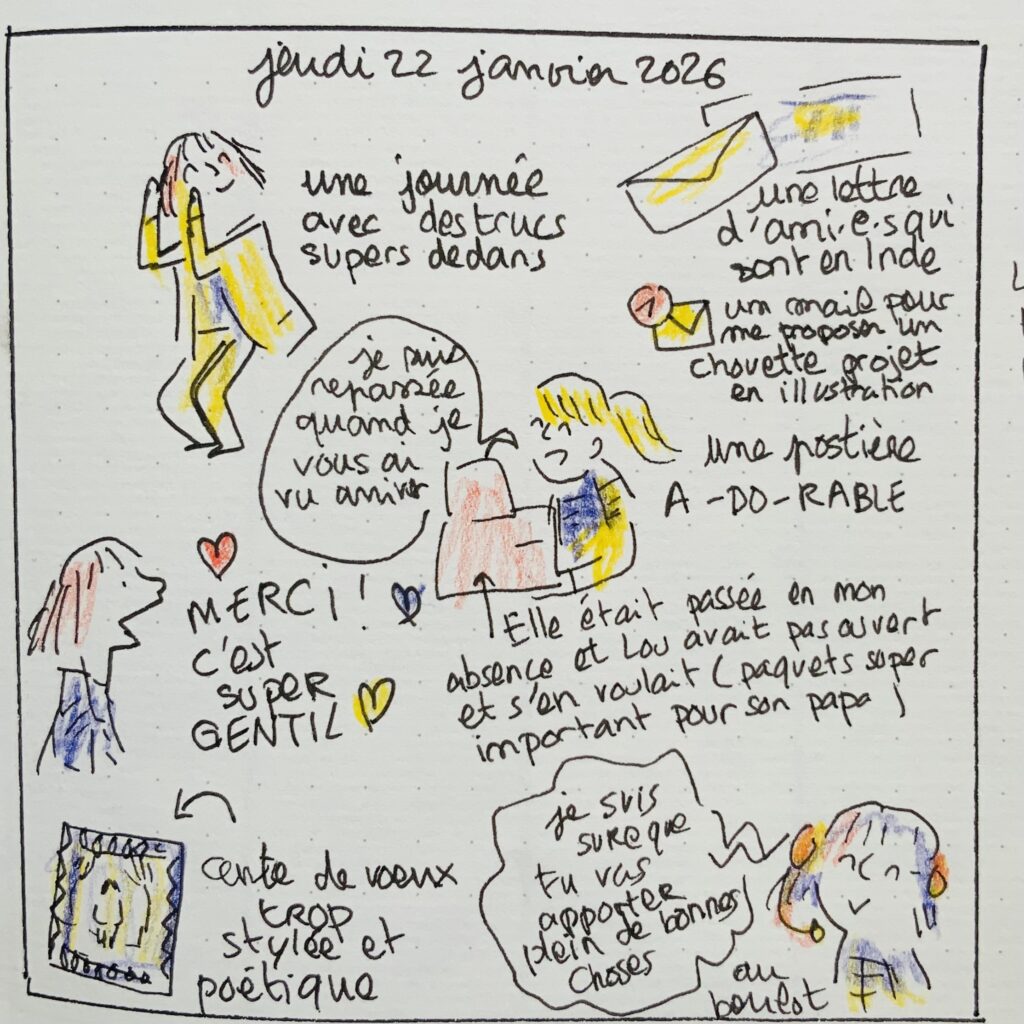 jeudi 22 janvier 2026
une journée
avec des trucs
supers dedans
une lettre
d'ami·e·s qui
sont en Inde
1
un mail pour
me proposer un
chouette projet
en illustration
je suis
repassée
quand je
vous ai
vu arriver
une postière
A-DO-RABLE
MERCI !
c'est
SUPER
GENTIL
Elle était passée en mon
absence et Lou avait pas ouvert
et s'en voulait (paquets super
important pour son papa)
carte de voeux
TROP
stylée et
poétique
je suis
sure que
tu vas
apporter
plein de bonnes
choses
au
boulot